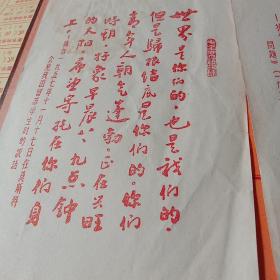 毛主席语录
世界是你们的，也是我们的，
但是歸根結底是你们的。你们
青年人朝气蓬勃，正在兴旺
时期，好象早晨八、九点钟
的太阳。希望寄托在你们身
上。
一九五七年十一月十七日在莫斯科
会见我国留学生时的谈话
问题》